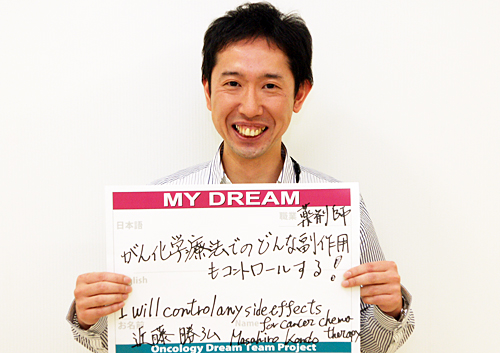 MY DREAM
日本語
職業 薬剤師
がん化学療法でのどんな副作用
もコントロールする!
English
I will control any side effects
for cancer chemo
therapy
お名前 近藤 勝弘 Name Masahiro Kondo
Oncology Dream Team Project